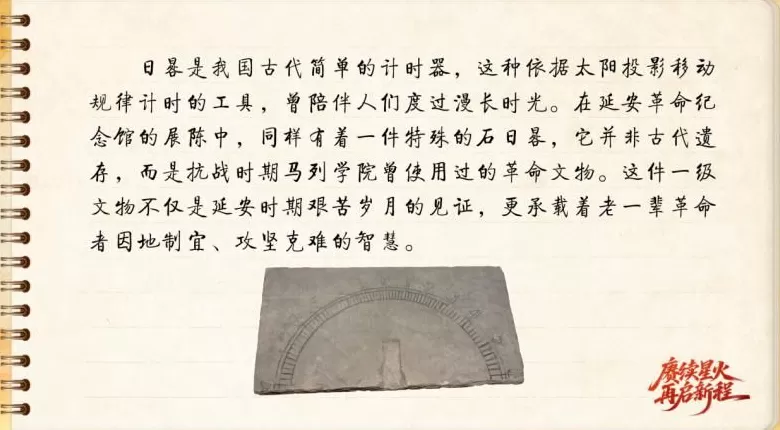 日晷是我国古代简单的计时器，这种依据太阳投影移动
规律计时的工具，曾陪伴人们度过漫长时光。在延安革命纪
念馆的展陈中，同样有着一件特殊的石日晷，它并非古代遗
存，而是抗战时期马列学院曾使用过的革命文物。这件一级
文物不仅是延安时期艰苦岁月的见证，更承载着老一辈革命
者因地制宜、攻坚克难的智慧。
赓续星火
再启新程